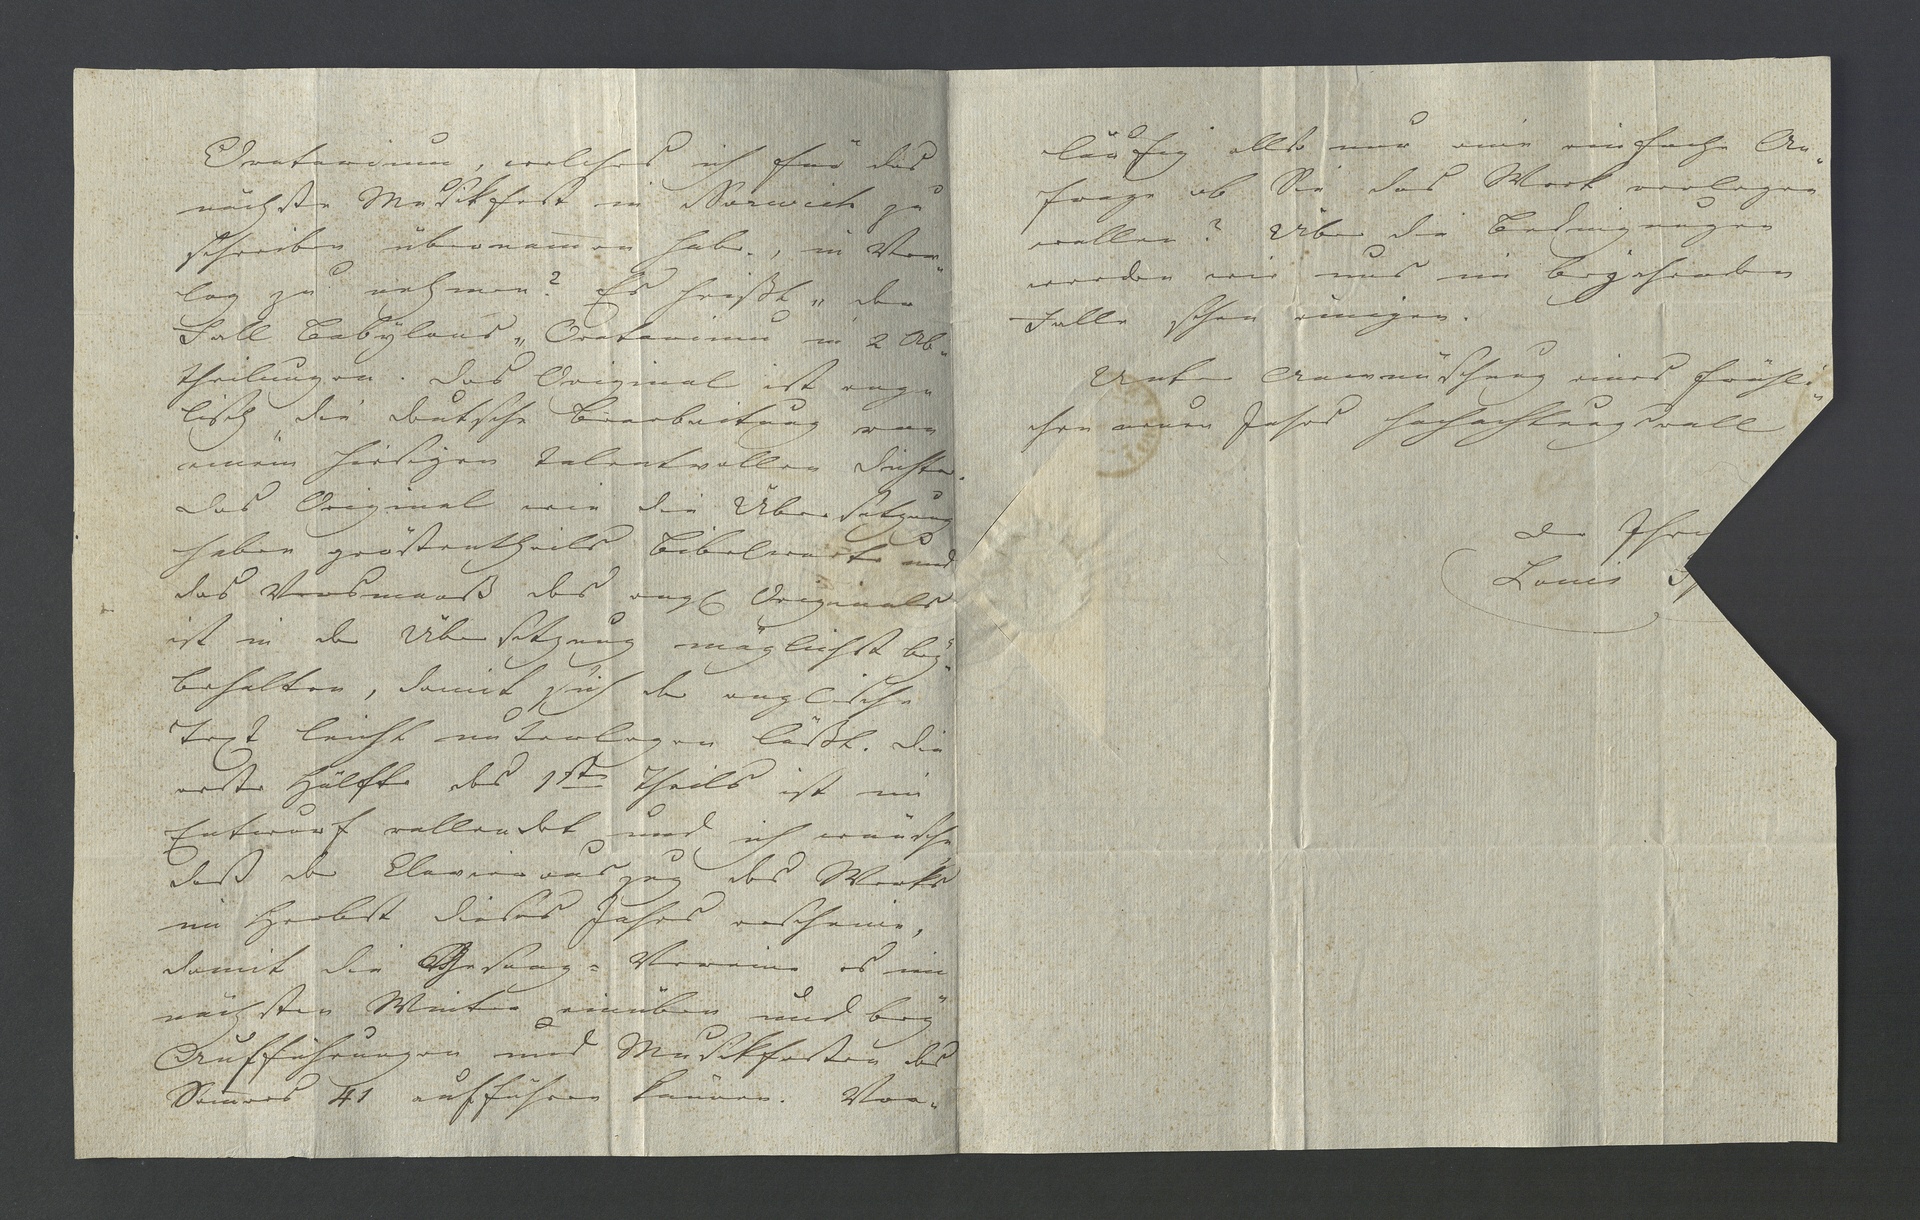 Oratorium, welches ich für das
nächste Musikfest in Norwich zu
schreiben übernom̅en habe, in Ver-
lag zu nehmen? Es heißt „der
Fall Babylons„ Oratorium in 2 Ab-
theilungen. Das Original ist eng-
lisch, die deutsche Bearbeitung von
einem hiesigen talentvollen Dichter.
Das Original wie die Übersetzung
haben gröstentheils Bibelworte und
das Versmaaß des engl Originals
ist in der Übersetzung möglichst bey-
behalten, damit sich der englische
Text leicht unterlegen läßt. Die
erste Hälfte des 1sten Theils ist im
Entwurf vollendet und ich wünsche
daß der Clavierauszug des Werks
im Herbst dieses Jahrs erscheine,
damit die Gesang-Vereine es im
nächsten Winter einüben und bey
Aufführungen und Musikfesten des
Som̅ers 41 aufführen können. Vor-
läufig also nur eine einfache An-
frage ob Sie das Werk verlegen
wollen? Über die Bedingungen
werden wir uns im bejahenden
Falle schon einigen.
Unter Anwünschung eines fröhli-
chen neuen Jahrs hochachtungsvoll
der Ihre
Louis Sp